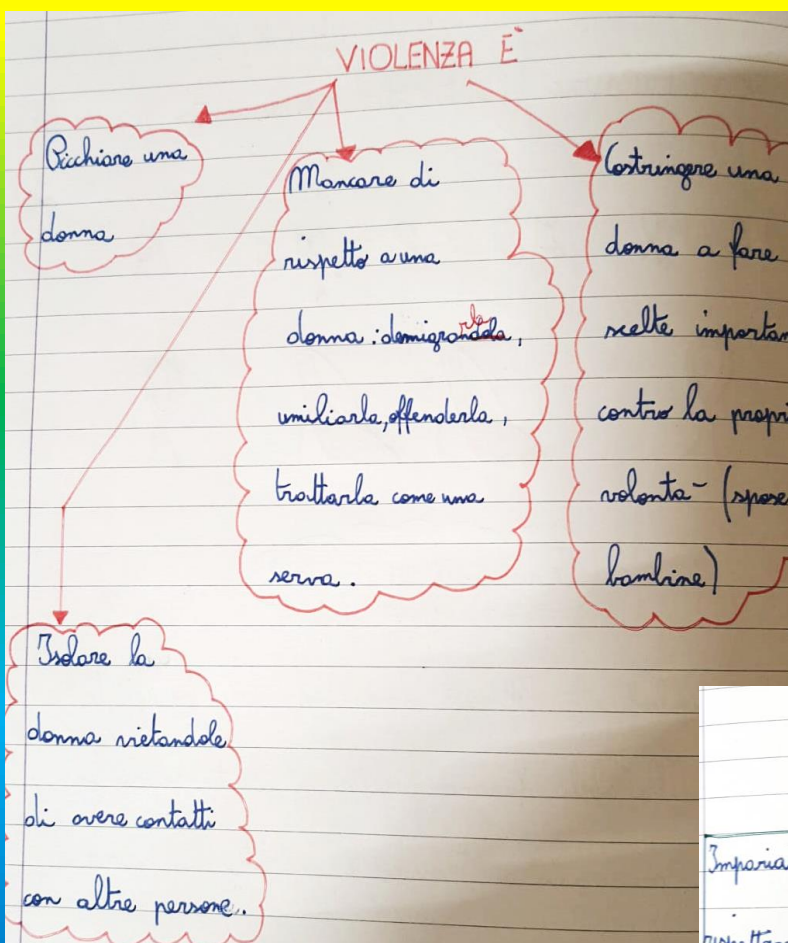 VIOLENZA È
Picchiare una
donna
Mancare di
rispetto a una
donna: demigrarla,
umiliarla, offenderla,
trattarla come una
serva.
Costringere una
donna a fare
scelte importan
contro la propri
volontà (spose
bambine)
Isolare la
donna vietandole
di avere contatti
con altre persone.
Imparia
rispettar